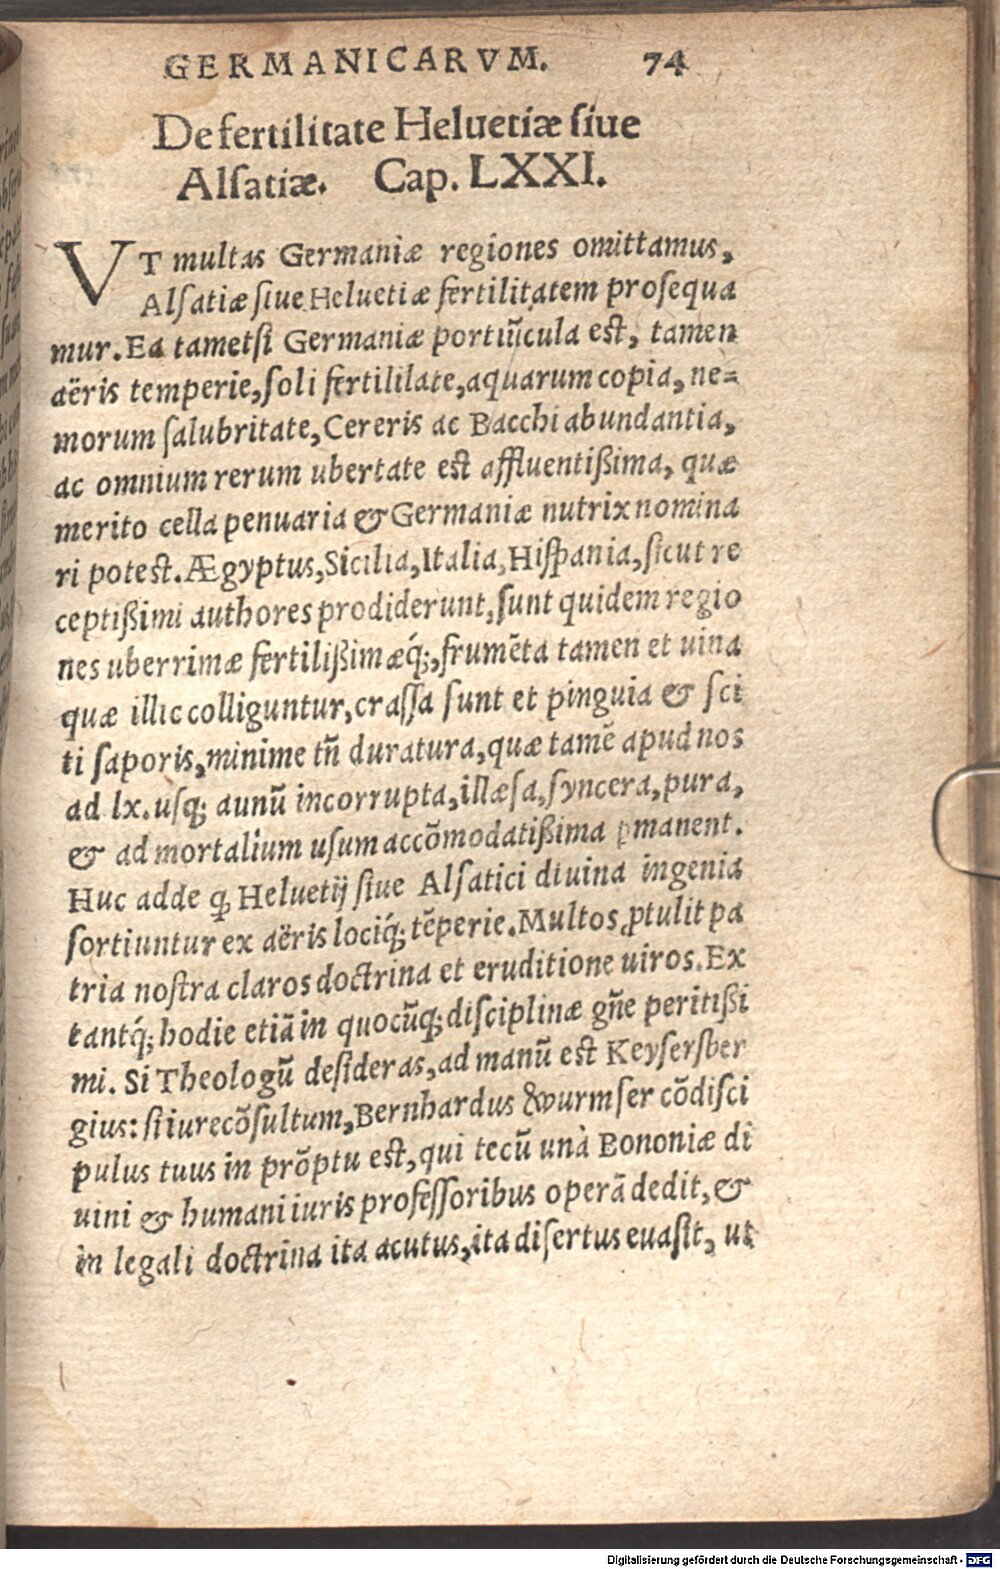 GERMANICARVM. 74
De fertilitate Heluetiæ ſiue
Alſatiæ. Cap. LXXI.
VT multas Germaniæ regiones omittamus,
Alſatiæ ſiue Heluetiæ fertilitatem proſequa
mur. Ea tametſi Germaniæ portiũcula est, tamen
aëris temperie, ſoli fertililate, aquarum copia, ne=
morum ſalubritate, Cereris ac Bacchi abundantia,
ac omnium rerum ubertate est affluentißima, quæ
merito cella penuaria & Germaniæ nutrix nomina
ri potest. Ægyptus, Sicilia, Italia, Hiſpania, ſicut re
ceptißimi authores prodiderunt, ſunt quidem regio
nes uberrimæ fertilißimæq́;, frumẽta tamen et uina
quæ illic colliguntur, craſſa ſunt et pinguia & ſci
ti ſaporis, minime tñ duratura, quæ tamẽ apud nos
ad lx. uſq; aunũ incorrupta, illæſa, ſyncera, pura,
& ad mortalium uſum accõmodatißima ꝑmanent.
Huc adde ꝙ Heluetij ſiue Alſatici diuina ingenia
ſortiuntur ex aëris lociq́; tẽperie. Multos ꝓtulit pa
tria noſtra claros doctrina et eruditione uiros. Ex
tantq́; hodie etiã in quocũq; diſciplinæ gñe peritißi
mi. Si Theologũ deſideras, ad manũ est Keyſerſber
gius: ſi iurecõſultum, Bernhardus Wurmſer cõdiſci
pulus tuus in prõptu est, qui tecũ unà Bononiæ di
uini & humani iuris profeſſoribus operã dedit, &
in legali doctrina ita acutus, ita diſertus euaſit, ut
Digitalisierung gefördert durch die Deutsche Forschungsgemeinschaft - DFG